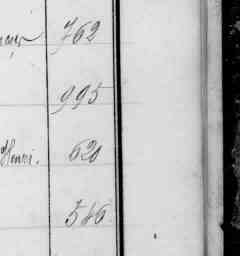 762
995
Henri. 620
546